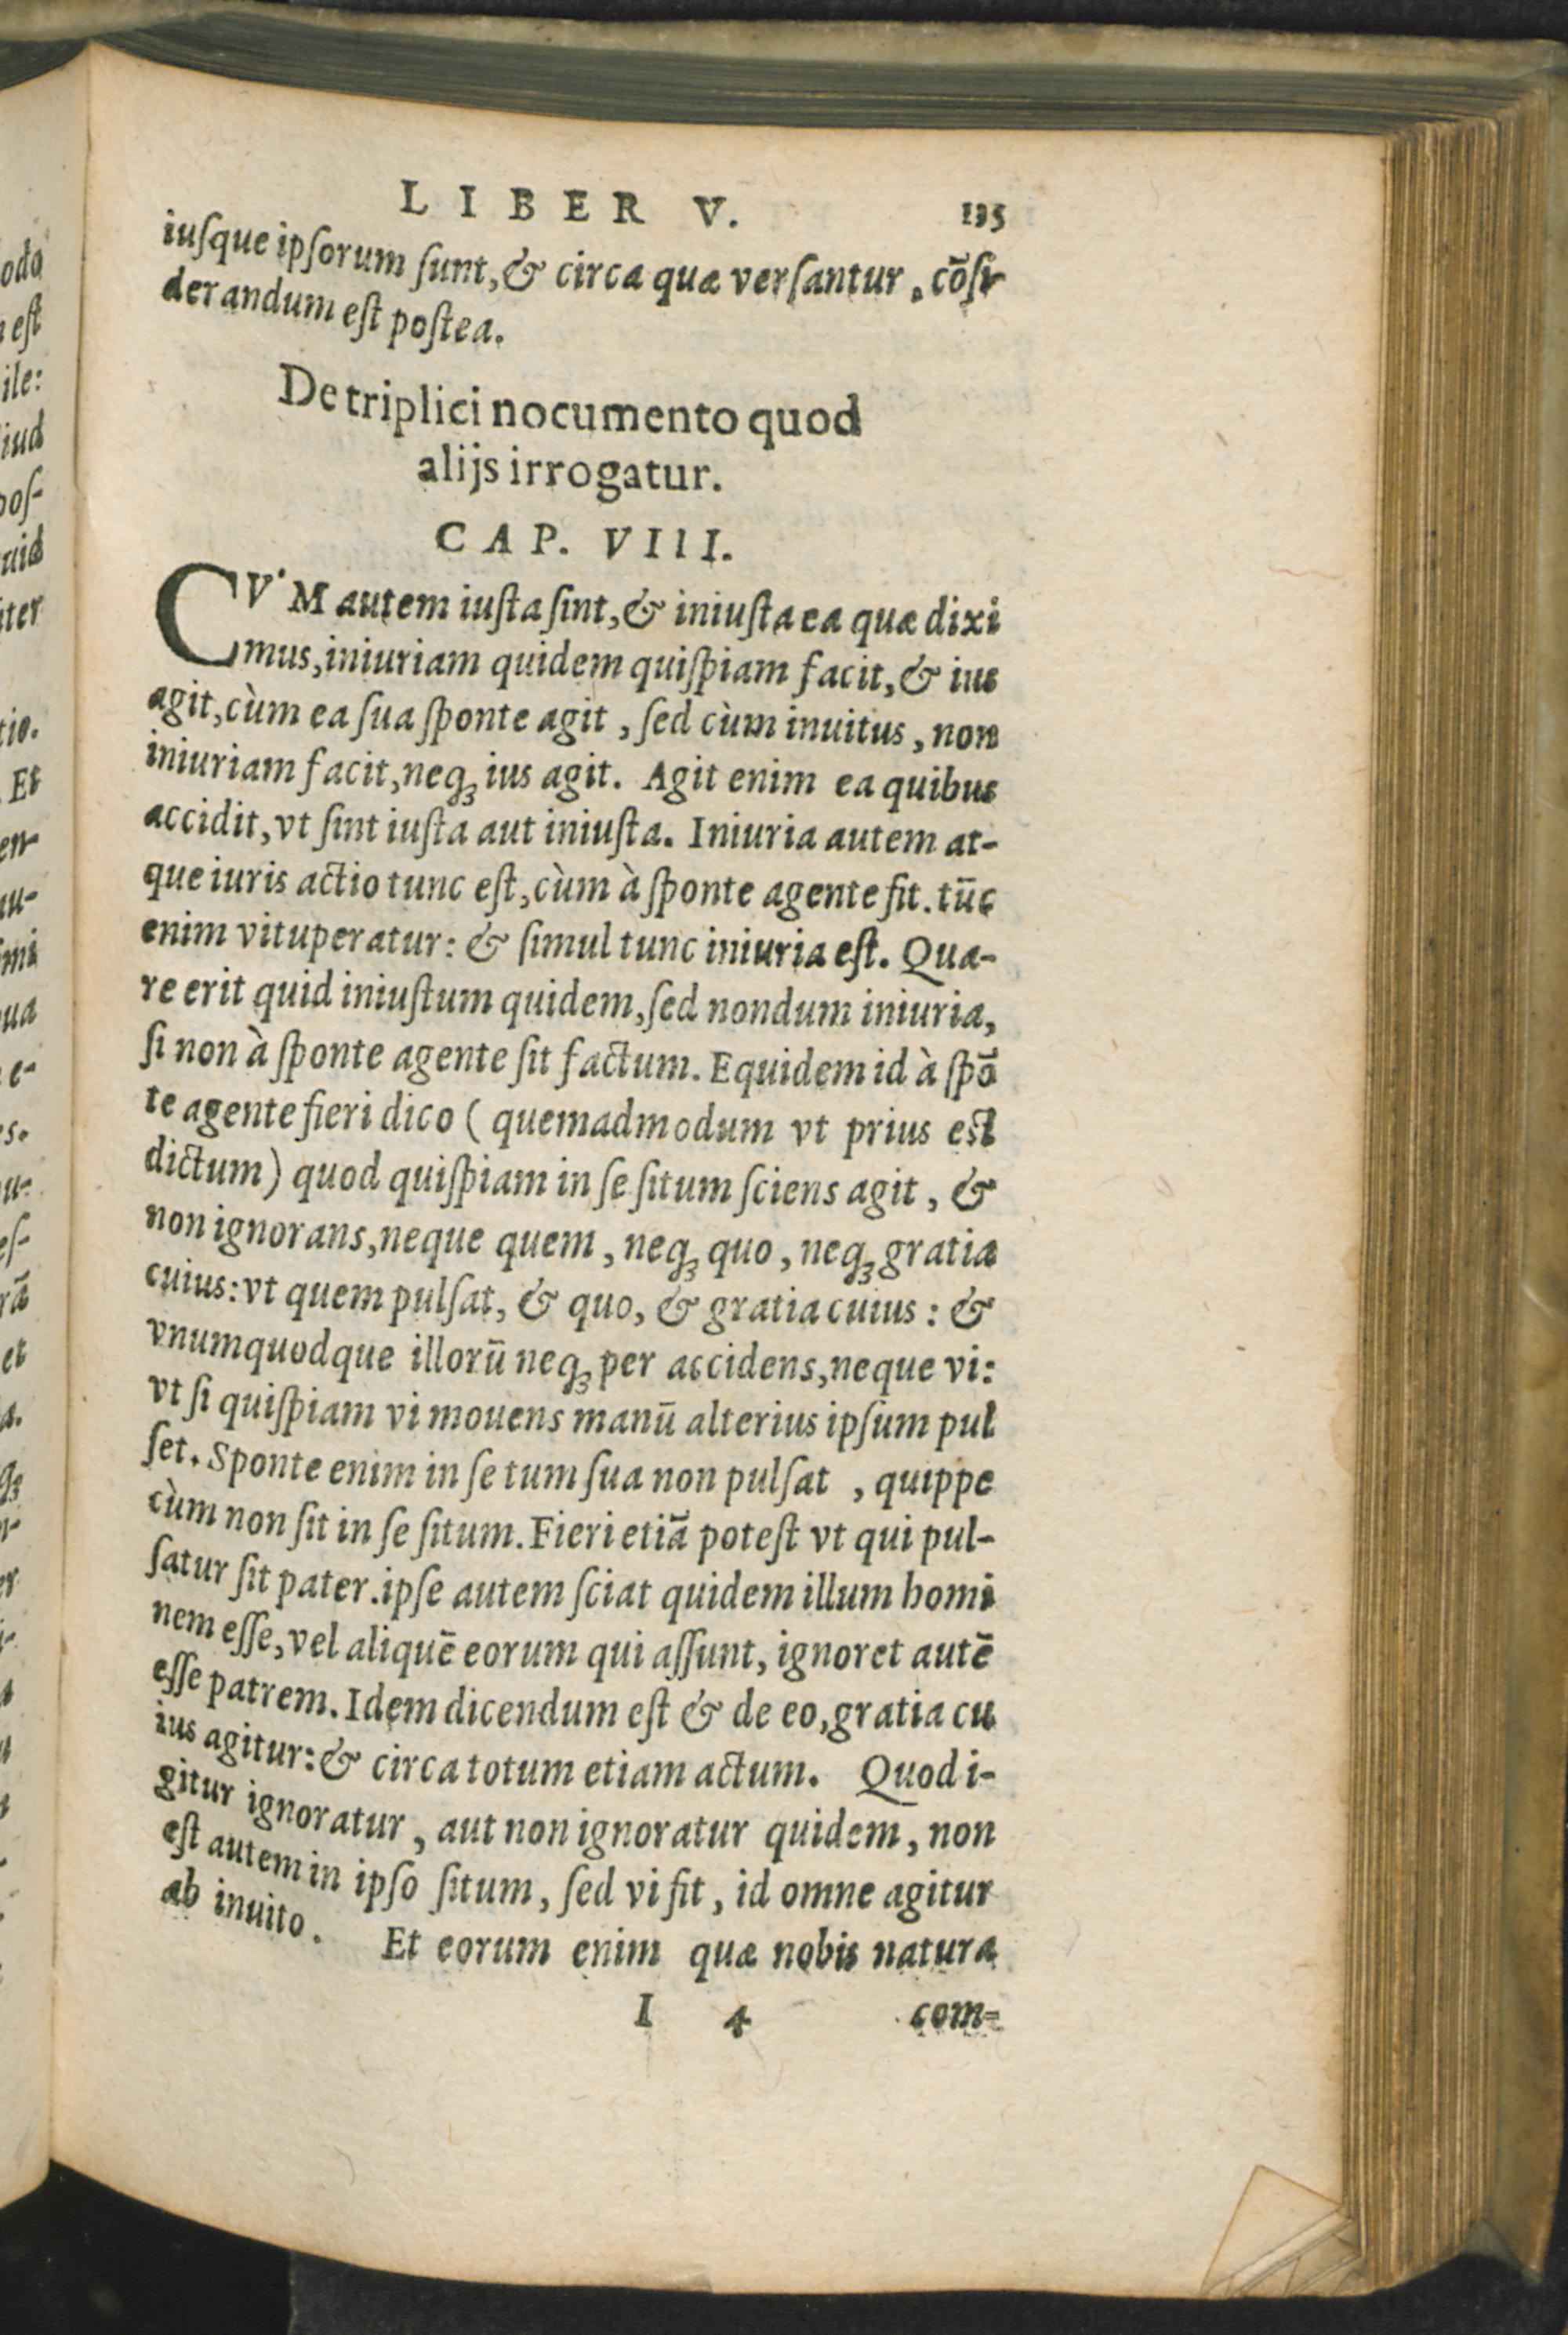 LIBER V. 135
iusque ipsorum sunt, & circa quæ versantur, cōsi-
derandum est postea.
De triplici nocumento quod
alijs irrogatur.
CAP. VIII.
CVM autem iusta sint, & iniusta ea quæ dixi
mus, iniuriam quidem quispiam facit, & ius
agit, cùm ea sua sponte agit, sed cùm inuitus, non
iniuriam facit, neq; ius agit. Agit enim ea quibus
accidit, vt sint iusta aut iniusta. Iniuria autem at-
que iuris actio tunc est, cùm à sponte agente fit. tūc
enim vituperatur: & simul tunc iniuria est. Qua-
re erit quid iniustum quidem, sed nondum iniuria,
si non à sponte agente sit factum. Equidem id à spō
te agente fieri dico ( quemadmodum vt prius est
dictum) quod quispiam in se situm sciens agit, &
non ignorans, neque quem, neq; quo, neq; gratia
cuius: vt quem pulsat, & quo, & gratia cuius: &
vnumquodque illorū neq; per accidens, neque vi:
vt si quispiam vi mouens manū alterius ipsum pul
set. Sponte enim in se tum sua non pulsat, quippe
cùm non sit in se situm. Fieri etiā potest vt qui pul-
satur sit pater. ipse autem sciat quidem illum homi
nem esse, vel aliquē eorum qui assunt, ignoret autē
esse patrem. Idem dicendum est & de eo, gratia cu
ius agitur: & circa totum etiam actum. Quod i-
gitur ignoratur, aut non ignoratur quidem, non
est autem in ipso situm, sed vi fit, id omne agitur
ab inuito. Et eorum enim quæ nobis natura
I 4 com-